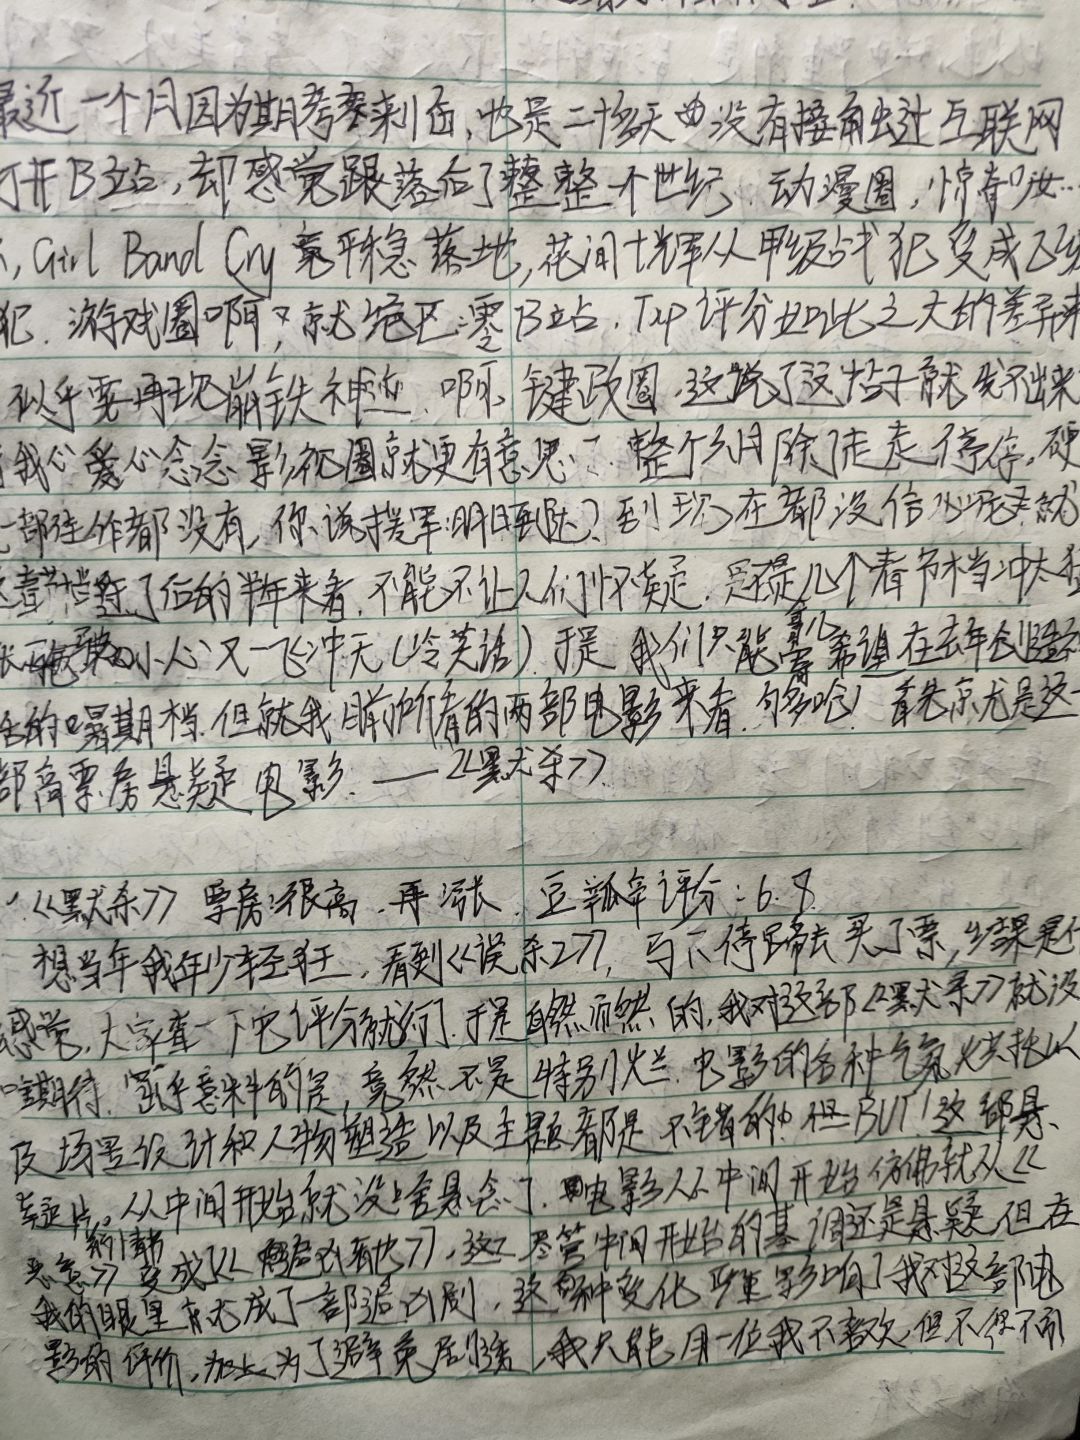 最近一个月因为期考来刺击,也是二十多天也没有接触过互联网
打开B站,却感觉跟落后了整整一个世纪.动漫圈,惊奇
,Girl Band Cry竟平稳落地,花间十辉从甲级战犯变成乙级
犯.游戏圈啊,就绝区零B站.Tap评分如此之大的差异来
似乎要再现崩铁神迹.啊,键政圈,这说了这帖子就发不出来
我心爱心念念影视圈就更有意思了.整个6月除了走走停停,硬
一部佳作都没有,你说援军明日到达?到现在都没信.就
这春节档除了后的半年来看,不能不让人们怀疑.是不是几个春节档冲太猛
小心又一飞冲天(冷笑话).于是我们只能寄希望在去年创
的暑期档.但就我目前所看的两部电影来看.够呛!首先就是这一
部高票房悬疑电影.——《默杀》
《默杀》票房:很高.再涨.豆瓣评分:6.8
想当年我年少轻狂,看到《误杀2》,马不停蹄去买了票,结果是什
感觉,大家查一下它评分就行.于是自然而然的,我对这部《默杀》就没
啥期待.出乎意料的是,竟然不是特别烂.电影的各种气氛烘托以
及场景设计和人物塑造以及主题都是不错的.但BUT!这部悬
疑片.从中间开始就没啥悬念了.电影从中间开始仿佛就从《
恶意》变成了《 》,这 尽管中间开始的基调还是悬疑,但在
我的眼里就成了一部追凶剧,这种变化严重影响了我对这部电
影的评价,加上为了避免剧透,我只能用一位我不喜欢,但不得不